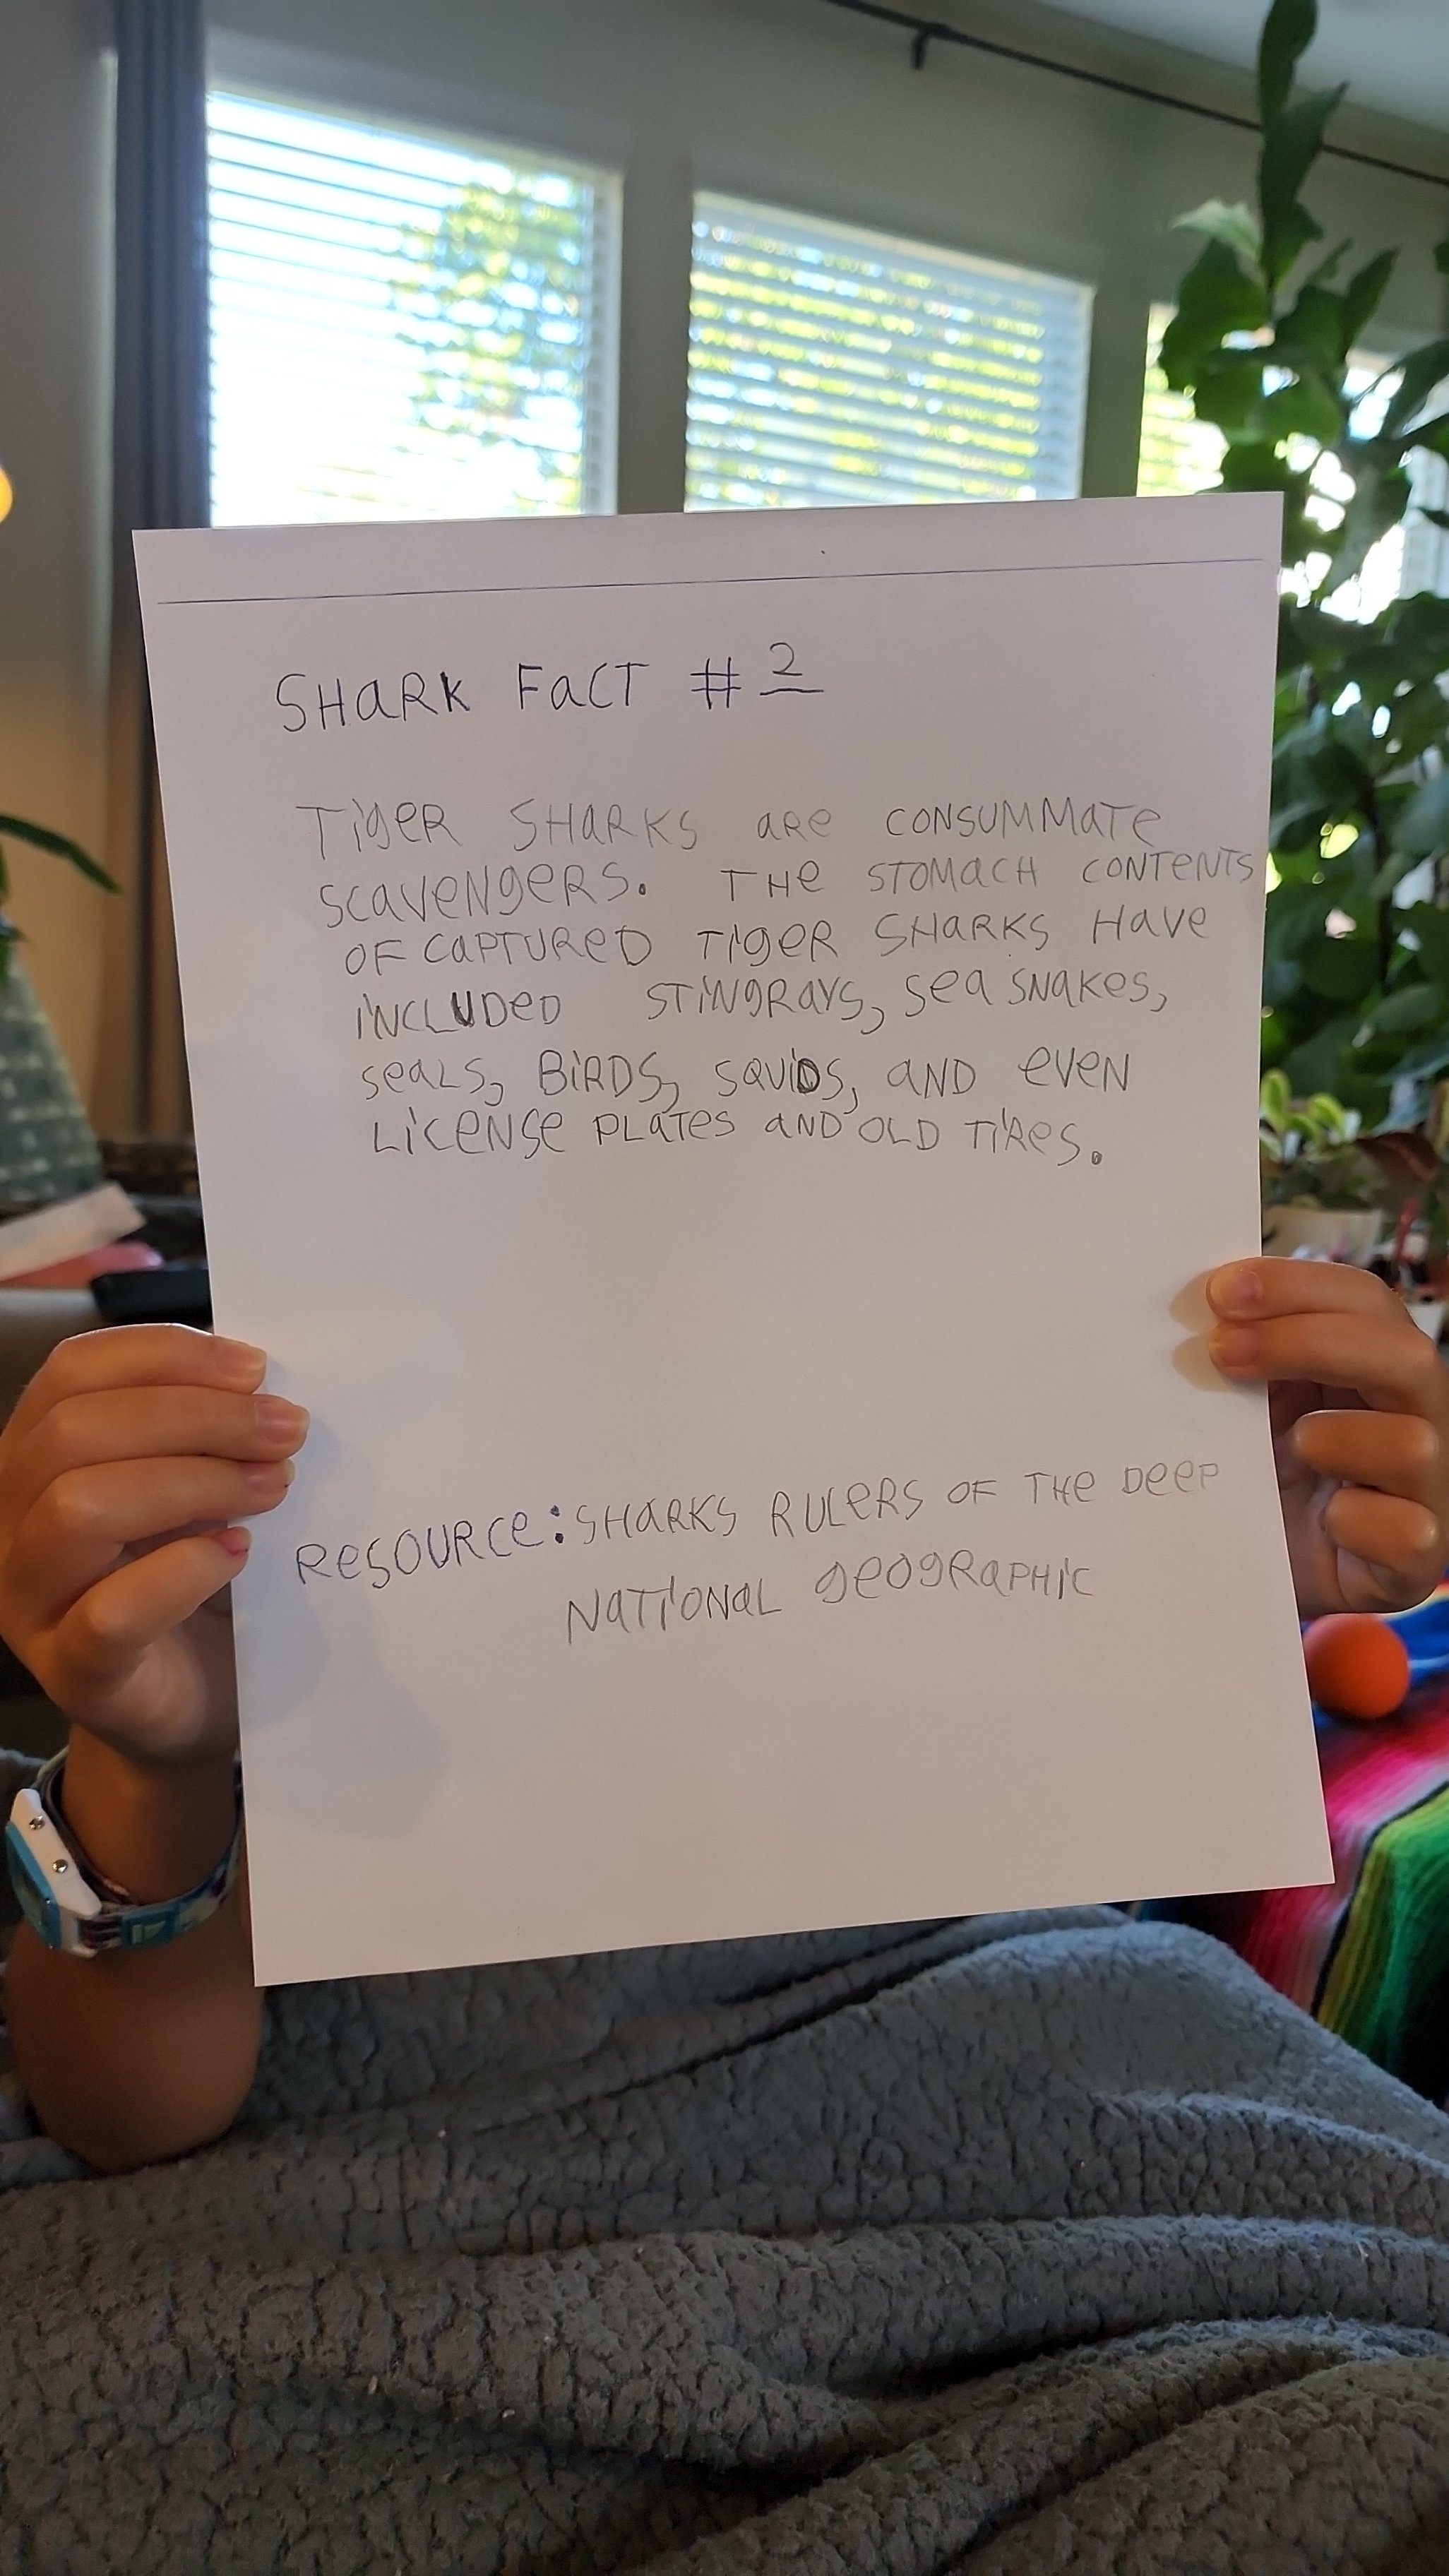 SHaRK FaCT # 2
TigeR SHaRKS aRe CONSUMMaTe
SCaVeNgeRS. THe STOMaCH CONTeNTS
OF CaPTUReD TigeR SHaRKS Have
iNCLUDeD STiNgRaYS, Sea SNaKeS,
SeaLS, BiRDS, SQUiDS, aND eveN
LiCeNSe PLaTeS aND OLD TiReS.
ReSOURCe: SHaRKS RULeRS OF THe DeeP
NaTiONaL geOgRaPHiC